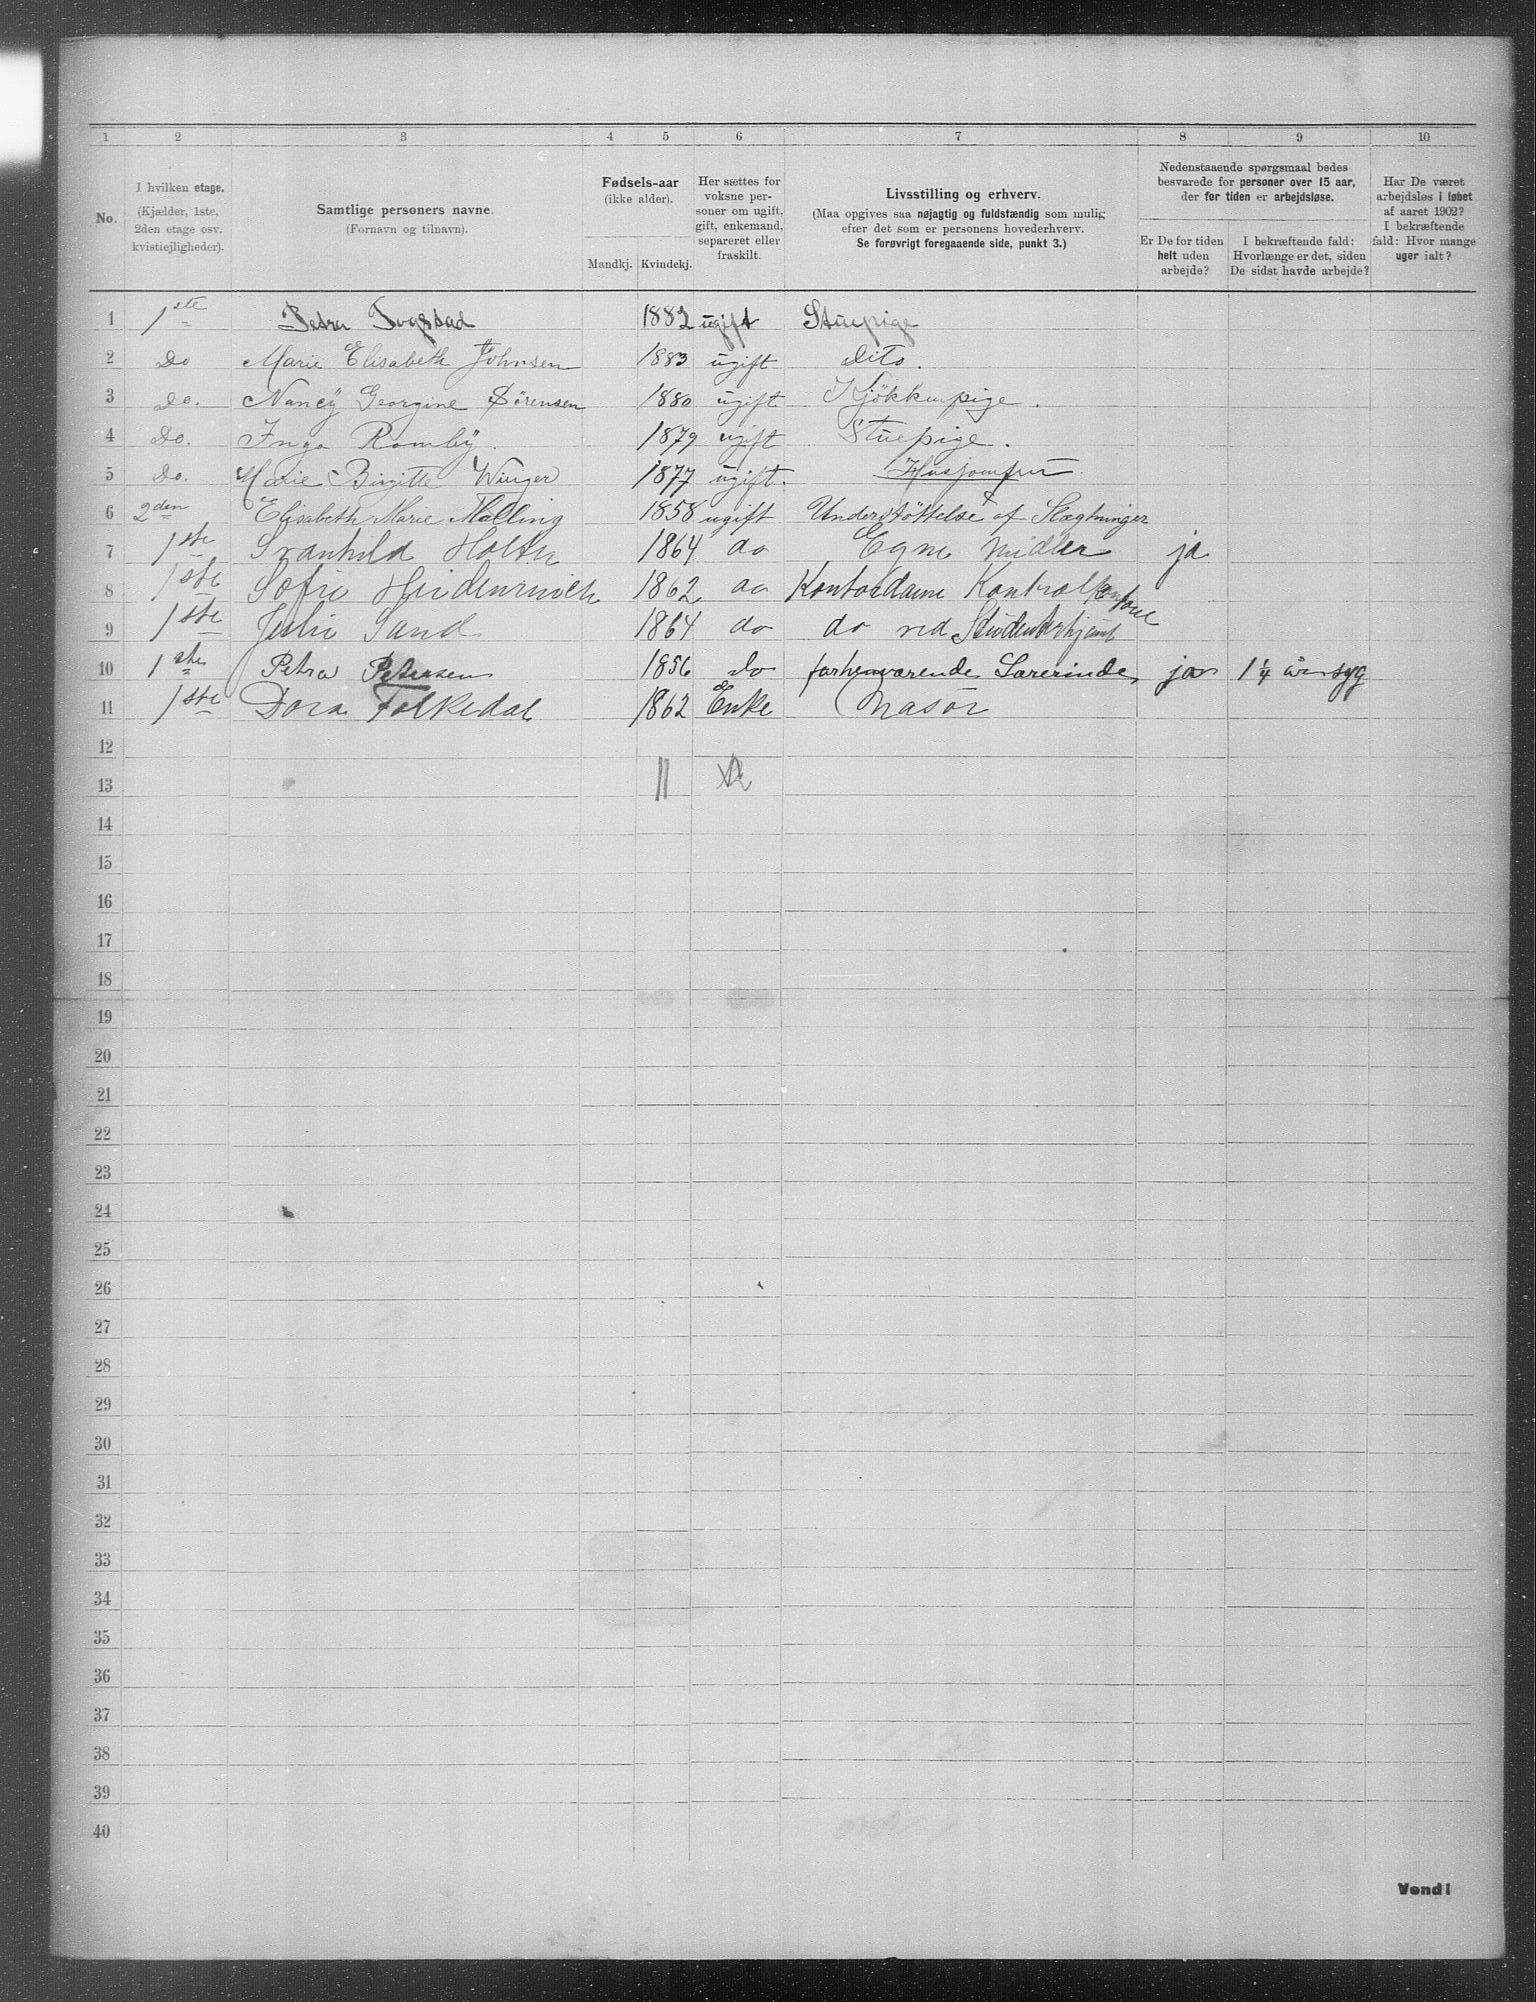 1 2 3 4 5 6 7 8 9 10
No.
I hvilken etage.
(Kjælder, 1ste,
2den etage osv.
kvistiejligheder).
Samtlige personers navne.
(Fornavn og tilnavn).
Fødsels-aar
(ikke alder).
Mandkj. Kvindekj.
Her sættes for
voksne per-
soner om ugift,
gift, enkemand,
separeret eller
fraskilt.
Livsstilling og erhverv.
(Maa opgives saa nøjagtig og fuldstændig som mulig
efter det som er personens hovederhverv.
Se forøvrigt foregaaende side, punkt 3.)
Nedenstaaende spørgsmaal bedes
besvarede for personer over 15 aar,
der for tiden er arbejdsløse.
Er De for tiden
helt uden
arbejde?
I bekræftende fald:
Hvorlænge er det, siden
De sidst havde arbejde?
Har De været
arbejdsløs i løbet
af aaret 1902?
I bekræftende
fald: Hvor mange
uger ialt?
1 1ste Petra Fogstad 1882 ugift Stuepige
2 Do Marie Elisabeth Johnsen 1883 ugift dito.
3 Do. Nancÿ Georgine Sørensen 1880 ugift Kjökkenpige.
4 Do. Inga Rombÿ. 1879 ugift Stuepige.
5 Do. Marie Birgitte Winger 1877 ugift. Husjomfru.
6 2den Elisabeth Marie Malling 1858 ugift Understöttelse af Slægtninger
7 1ste Svanhild Holth 1864 do Egne Midler ja
8 1ste Sofie Heidenreich 1862 do Kontordame Kontrolkontore
9 1ste Sand 1864 do do ved Studenterhjemt
10 1ste Petra Petersen 1856 do forhenværende Lærerinde, ja 1 1/4 år syg
11 1ste Dora Folkedal 1862 Enke Masör
12
13 11
14
15
16
17
18
19
20
21
22
23
24
25
26
27
28
29
30
31
32
33
34
35
36
37
38
39
40
Vend!